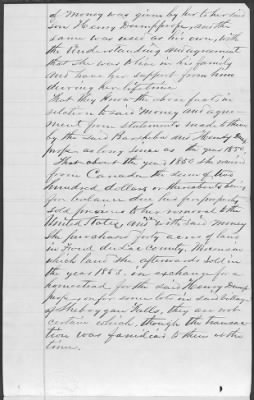 of money was given by her to her said
son Henry Dumpprope, and the
same was used as his own, with
the understanding and agreement
that she was to live in his family
and have her support from him
during her life time
That they know the above facts in
relation to said money and agree-
ment from statements made to them
by the said Barbha and Henry Dump
prope as long since as the year 1850,
That about the year 1850 she received
from Canada the sum of two
hundred dollars or thereabouts being
for balance due her for property
sold previous to her removal to the
United States, and with said money
she purchased forty acres of land
in Fond du Lac County, Wisconsin
which land she afterwards sold in
the year 1853. in exchange for a
homestead for the said Henry Dump
prope, on for some lots in said village
of Sheboygan Falls, they are not
certain which, though the transac-
tion was familiar to them at the
time.